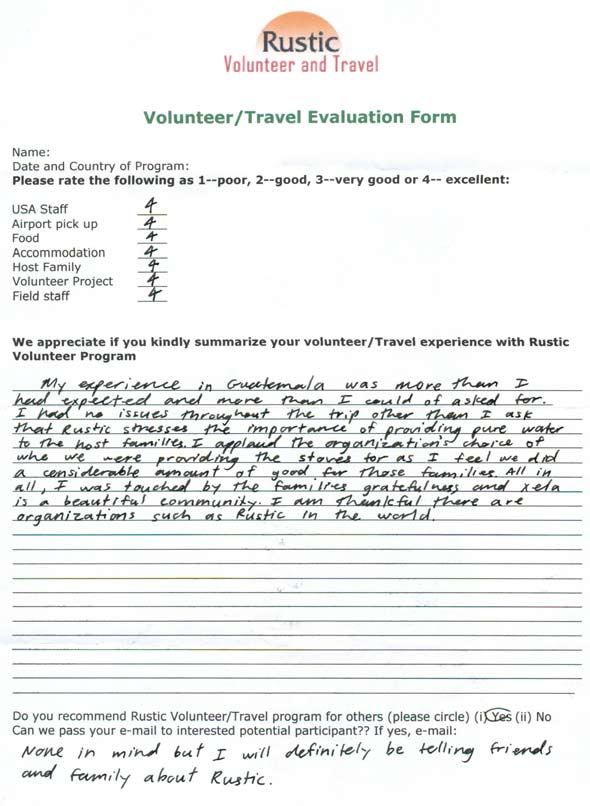 Rustic
Volunteer and Travel
Volunteer/Travel Evaluation Form
Name:
Date and Country of Program:
Please rate the following as 1--poor, 2--good, 3--very good or 4-- excellent:
USA Staff 4
Airport pick up 4
Food 4
Accommodation 4
Host Family 4
Volunteer Project 4
Field staff 4
We appreciate if you kindly summarize your volunteer/Travel experience with Rustic
Volunteer Program
My experience in Guatemala was more than I
had expected and more than I could of asked for.
I had no issues throughout the trip other than I ask
that Rustic stresses the importance of providing pure water
to the host families. I applaud the organization's choice of
who we were providing the stoves for as I feel we did
a considerable amount of good for those families. All in
all, I was touched by the families gratefulness and Xela
is a beautiful community. I am thankful there are
organizations such as Rustic in the world.
Do you recommend Rustic Volunteer/Travel program for others (please circle) (i) Yes (ii) No
Can we pass your e-mail to interested potential participant?? If yes, e-mail:
None in mind but I will definitely be telling friends
and family about Rustic.